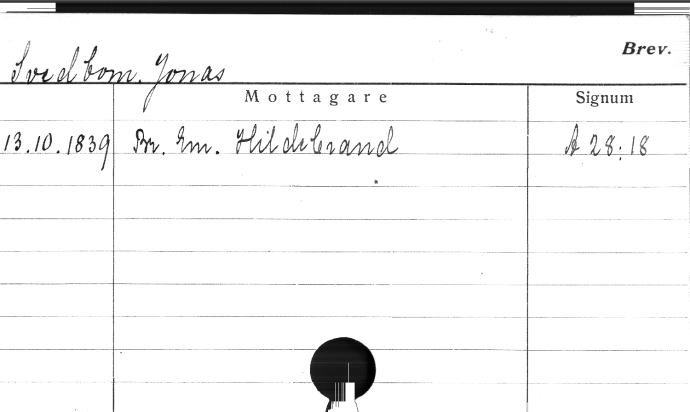 Brev.
Svedbom. Jonas
Mottagare Signum
13.10.1839 Br. Em. Hildebrand A 28:18